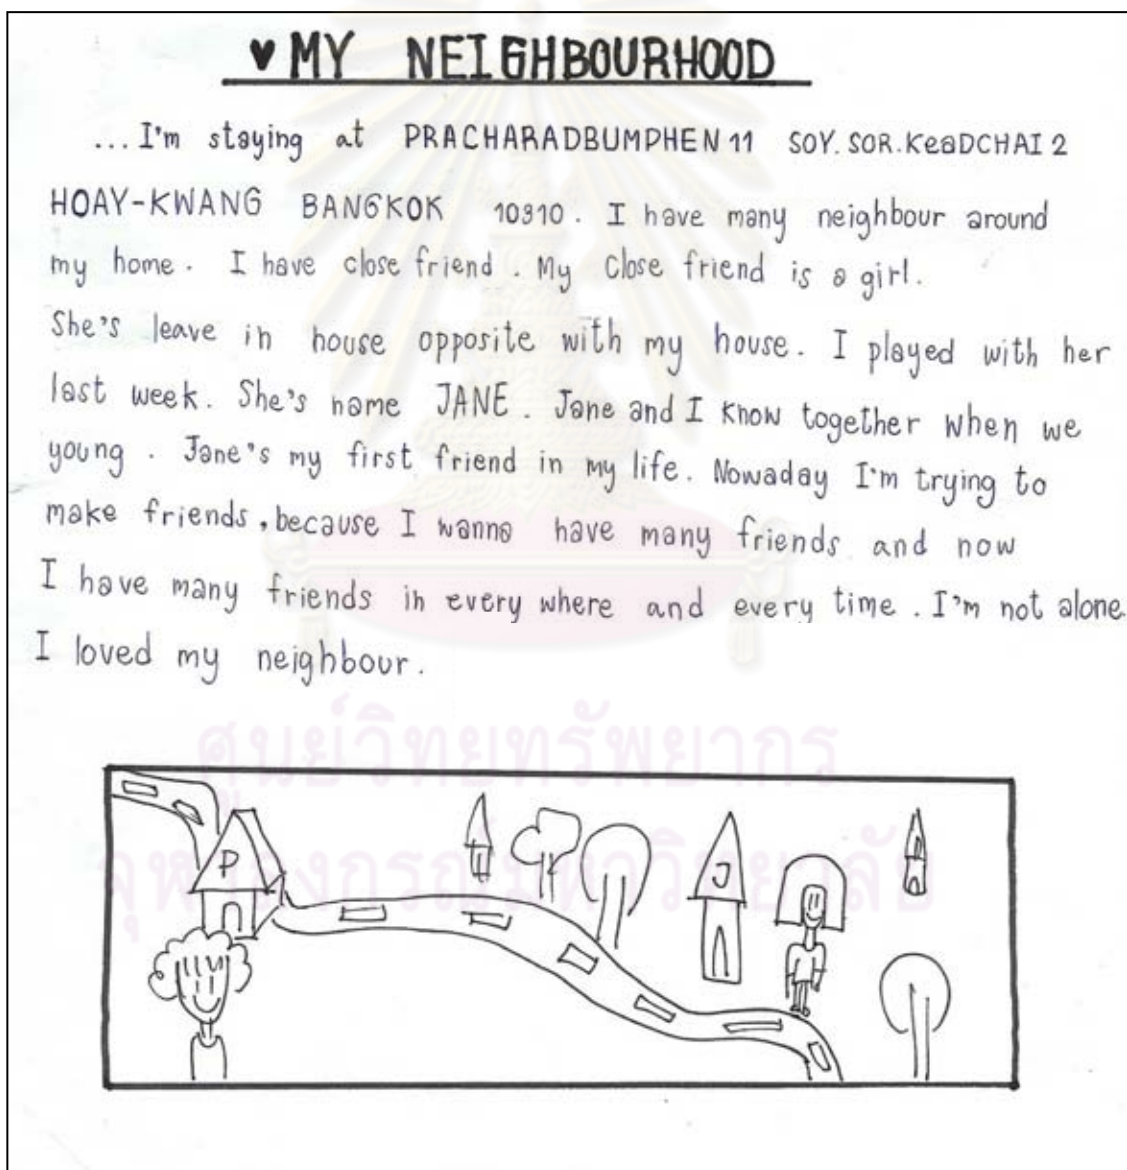 ♥ MY NEIGHBOURHOOD
...I'm staying at PRACHARADBUMPHEN 11 SOY. SOR.KeaDCHAI 2
HOAY-KWANG BANGKOK 10310. I have many neighbour around
my home. I have close friend. My Close friend is a girl.
She's leave in house opposite with my house. I played with her
last week. She's name JANE. Jane and I know together when we
young. Jane's my first friend in my life. Nowaday I'm trying to
make friends, because I wanna have many friends and now
I have many friends in every where and every time. I'm not alone
I loved my neighbour.
ศูนย์วิทยทรัพยากร
จุฬาลงกรณ์มหาวิทยาลัย
P
J